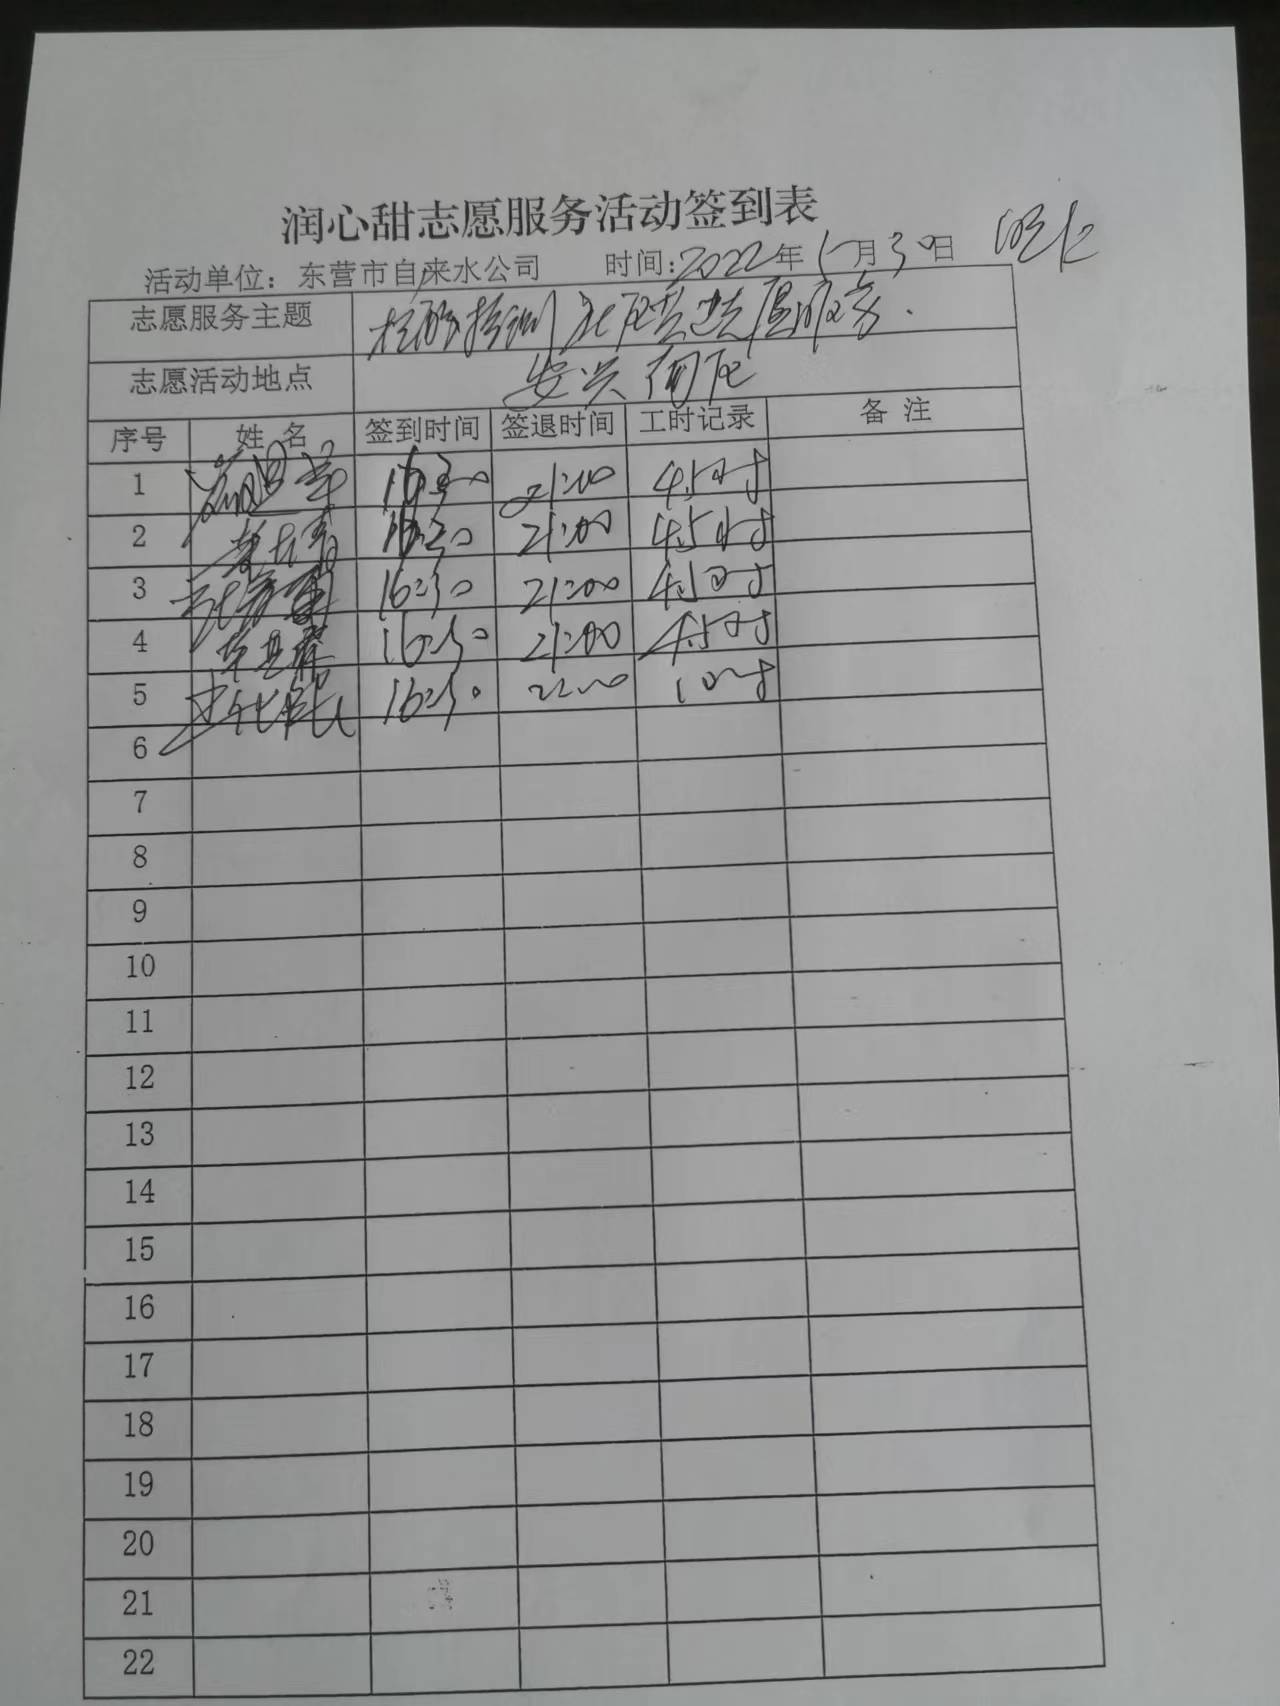 润心甜志愿服务活动签到表
活动单位：东营市自来水公司 时间:2022年5月30日
志愿服务主题 核酸检测 社区志愿服务.
志愿活动地点 安兴南区
序号 姓名 签到时间 签退时间 工时记录 备注
1 16:30 21:00 4.5小时
2 16:30 21:00 4.5小时
3 16:30 21:00 4.5小时
4 16:30 21:00 4.5小时
5 16:30
6
7
8
9
10
11
12
13
14
15
16
17
18
19
20
21
22